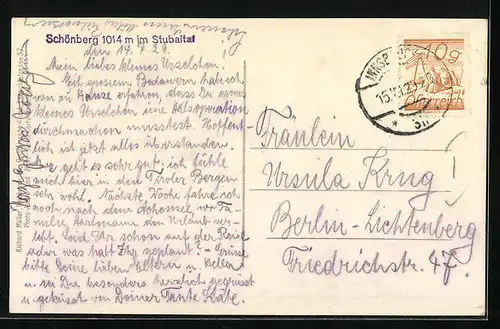 Schönberg 1014 m im Stubaital
den 14.7.26.
Mein liebes kleines Urselchen!
Mit grossem Bedauern habe ich
von zu Hause erfahren, dass Du armes
kleines Urselchen eine Halsoperation
durchmachen musstest. Hoffent-
lich ist jetzt alles überstanden.
Mir geht es sehr gut, ich fühle
mich hier in den Tiroler Bergen
sehr wohl. Nächste Woche fahre ich
noch nach dem Achensee, wo Fa-
milie Hartmann den Urlaub ver-
lebt. Seid Ihr schon auf der Reise
oder was habt Ihr geplant? - Grüsse
bitte Deine lieben Eltern u.
u. sei Du besonders herzlich gegrüsst
u. geküsst von Deiner Tante Käte.
Richard Müller
INNSBRUCK
10 g
Fräulein
Ursula Krug
Berlin-Lichtenberg
Friedrichstr. 47.